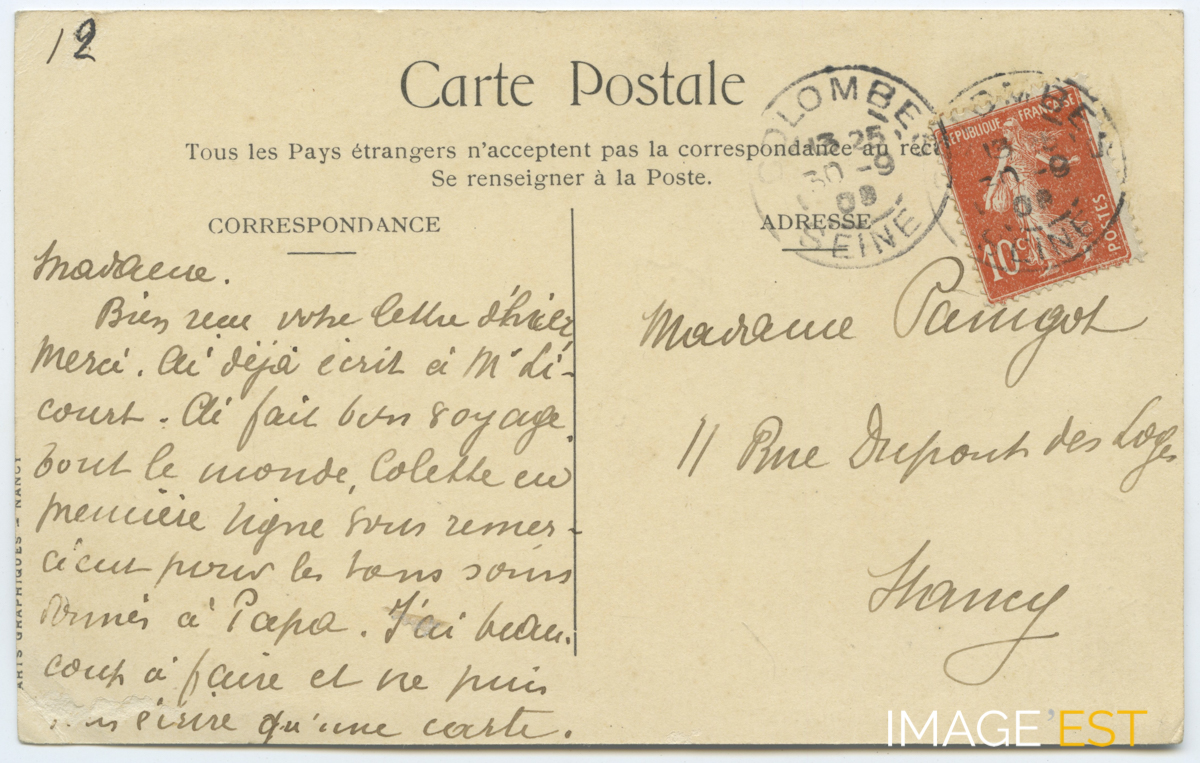 12
Carte Postale
Tous les Pays étrangers n'acceptent pas la correspondance au
Se renseigner à la Poste.
CORRESPONDANCE
ADRESSE
COLOMBES
13 25
30 -9
09
SEINE
RÉPUBLIQUE FRANÇAISE
10c
POSTES
Madame.
Bien reçu votre lettre d'hier,
Merci. Ai déjà écrit à Mr Li-
court. Ai fait bon voyage.
Tout le monde, Colette en
première ligne vous remer-
cient pour les bons soins
donnés à Papa. J'ai beau-
coup à faire et ne puis
écrire qu'une carte.
Madame Paingot
11 Rue Dupont des Loges
Nancy
ARTS GRAPHIQUES - NANCY
IMAGE'EST